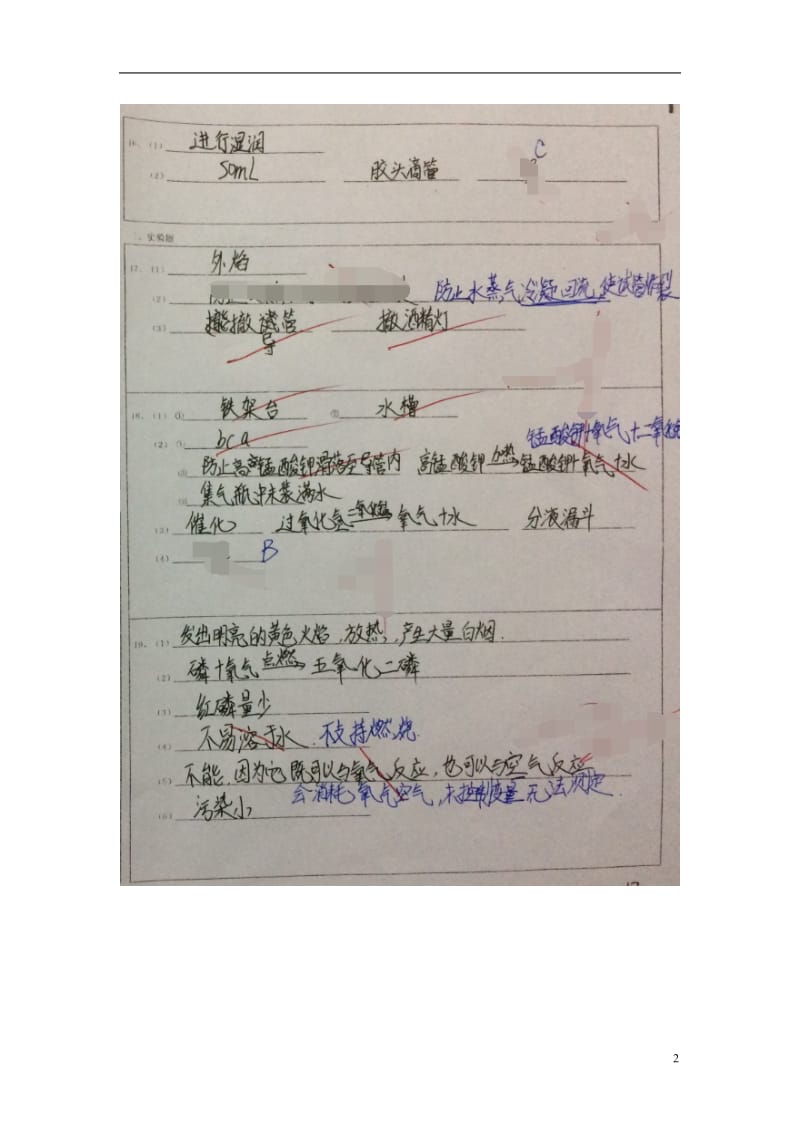 16、(1) 进行湿润
(2) 50mL 胶头滴管 C
二、实验题
17、(1) 外焰
(2) 防止水蒸气冷凝回流,使试管炸裂
(3) 撤导管 撤酒精灯
18、(1) ① 铁架台 ② 水槽
锰酸钾+氧气+二氧化锰
(2) ① bca
② 防止高锰酸钾滑落至导管内 高锰酸钾 加热 锰酸钾+氧气+水
③ 集气瓶中未装满水
(3) 催化 过氧化氢 二氧化锰 氧气+水 分液漏斗
(4) B
19、(1) 发出明亮的黄色火焰,放热,产生大量白烟.
(2) 磷+氧气 点燃 五氧化二磷
(3) 红磷量少
(4) 不易溶于水. 不支持燃烧.
(5) 不能,因为它既可以与氧气反应,也可以与空气反应
会消耗氧气空气,未控制变量无法测定.
(6) 污染小
2